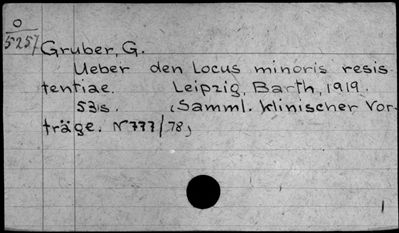 O
5257
Gruber, G.
Ueber den Locus minoris resis
tentiae. Leipzig, Barth, 1919.
53s. (Samml. klinischer Vor-
träge. N777/78)
1